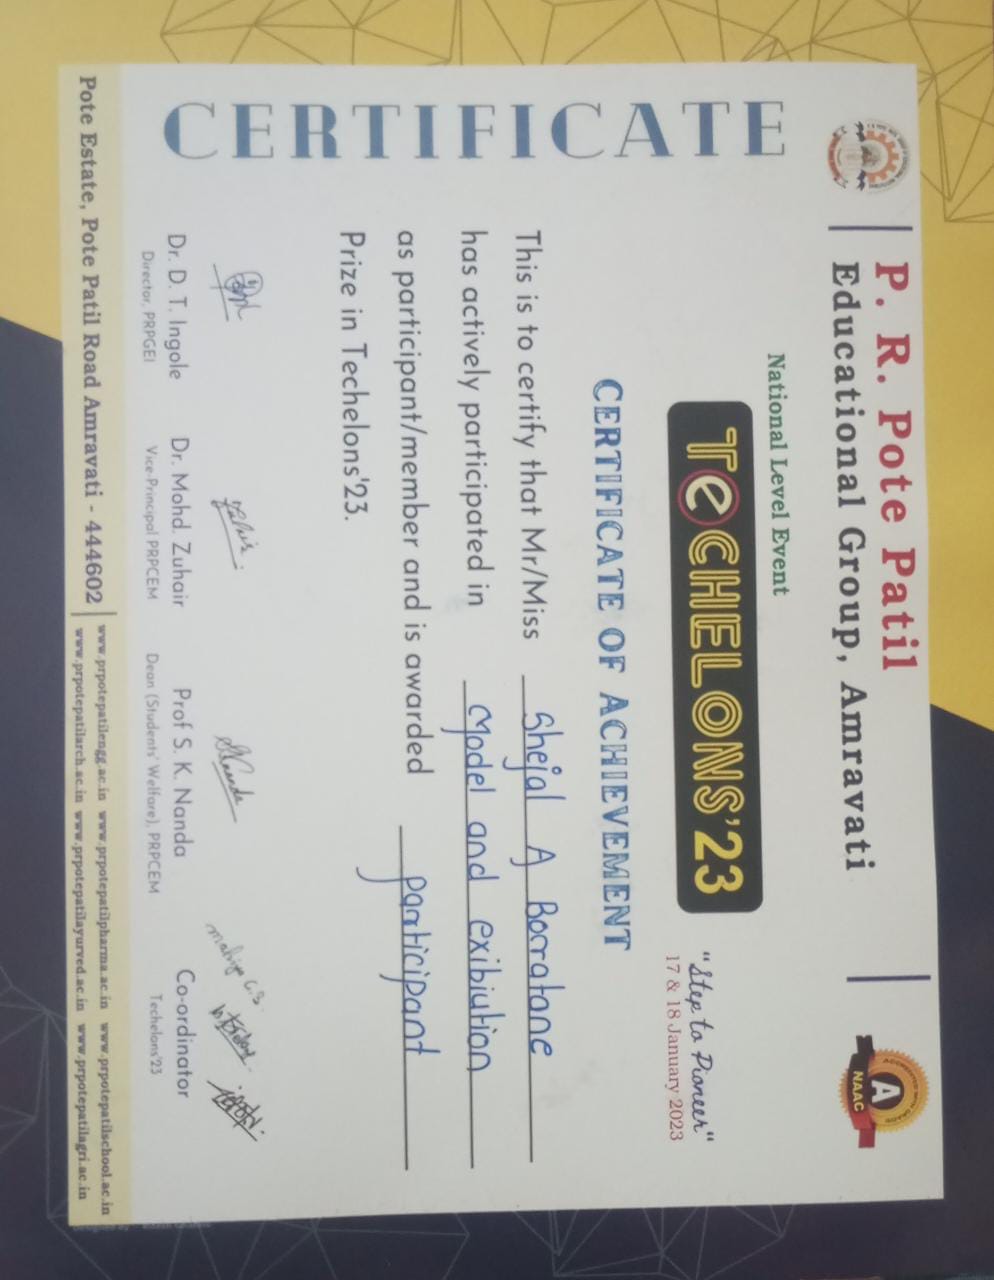 P. R. Pote Patil
Educational Group, Amravati
A
NAAC
National Level Event
TeCHELONS'23
"Step to Pioneer"
17 & 18 January 2023
CERTIFICATE
CERTIFICATE OF ACHIEVEMENT
This is to certify that Mr/Miss Shejal A Borratane
has actively participated in Model and exibiution
as participant/member and is awarded participant
Prize in Techelons'23.
Dr. D. T. Ingole
Director, PRPGEI
Dr. Mohd. Zuhair
Vice-Principal PRPCEM
Prof S. K. Nanda
Dean (Students' Welfare), PRPCEM
Co-ordinator
Techelons'23
Pote Estate, Pote Patil Road Amravati - 444602
www.prpotepatilengg.ac.in www.prpotepatilpharma.ac.in www.prpotepatilschool.ac.in
www.prpotepatilarch.ac.in www.prpotepatilayurved.ac.in www.prpotepatilagri.ac.in